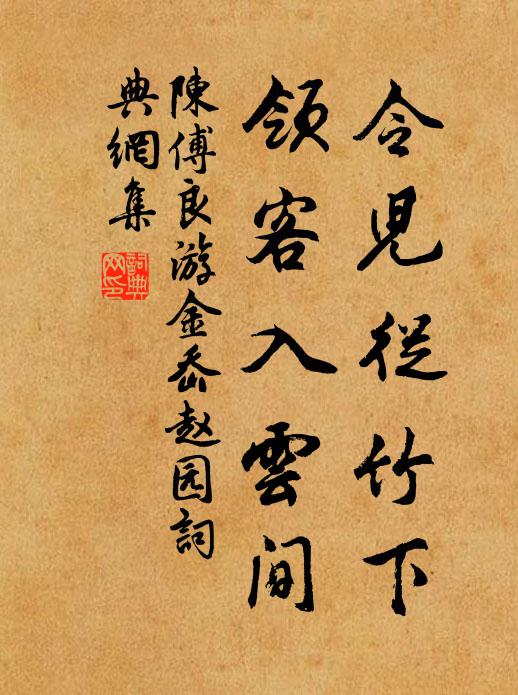 令兒從竹下
領客入雲間
陳傅良游金岙赵园詞
典網集
詞典
网印